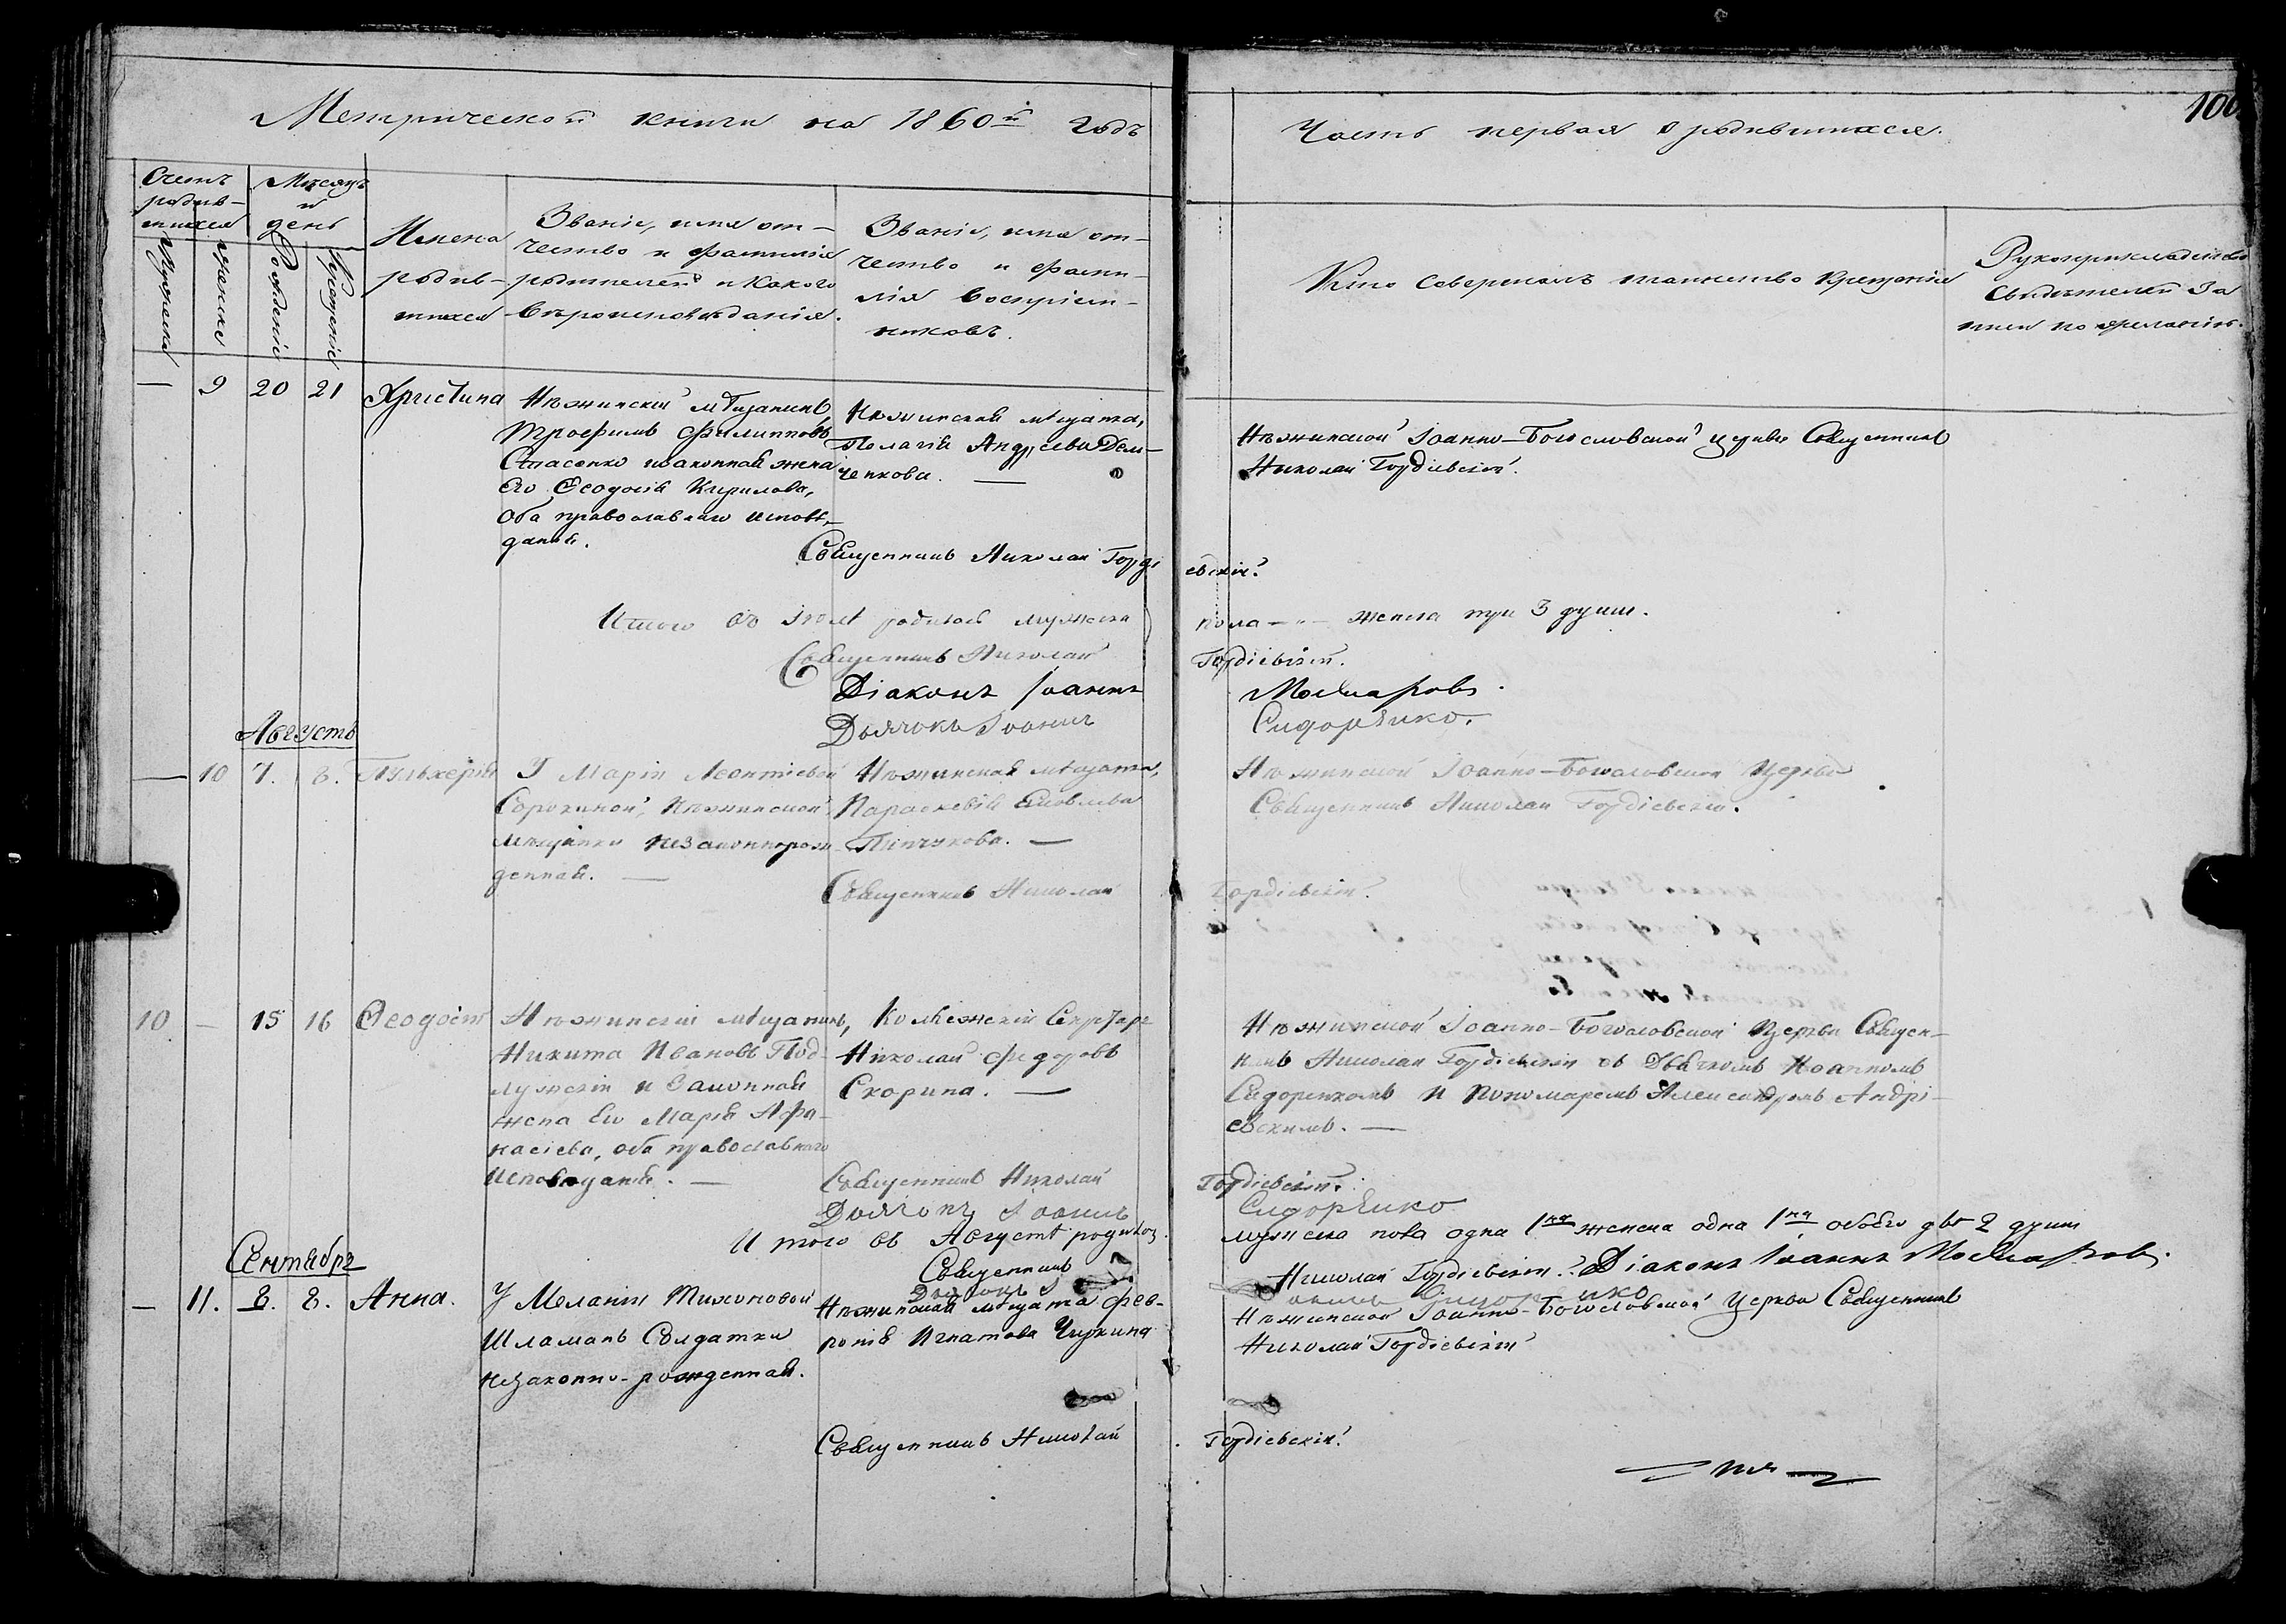 Метрической книги на 1860й годъ
Часть первая о родившихся.
100
Счетъ
родив-
шихся
Мѣсяцъ
и
день
Мужеска
Женска
Рожденіе
Крещеніе
Имена
родив-
шихся
Званіе, имя от-
чество и фамилія
родителей и какого
вѣроисповѣданія.
Званіе, имя от-
чество и фами-
лія воспріем-
никовъ.
Кто совершалъ таинство крещенія
Рукоприкладство
свидѣтелей за-
писи по желанію.
— 9 20 21 Христина
Нѣжинскій мѣщанинъ,
Трофимъ Филипповъ
Спасенко и законная жена
его Ѳеодосія Кирилова,
оба православнаго исповѣ-
данія.
Нѣжинская мѣщанка,
Пелагія Андреева Дем-
ченкова. —
Нѣжинской Іоанно-Богословской церкви Священникъ
Николай Гордіевскій.
Священникъ Николай Горді
евскій.
Итого въ Іюлѣ родилось мужеска
пола — „ — женска три 3 души.
Священникъ Николай
Гордіевскій.
Діаконъ Іоаннъ
Дьячокъ Іоаннъ
Сидоренко.
Августъ
— 10 7. 8. Пульхерія
У Маріи Леонтіевой
Сорокиной, Нѣжинской
мѣщанки незаконнорож-
денная. —
Нѣжинская мѣщанка,
Параскевія Яковлева
Нѣжинской Іоанно-Богословской Церкви
Священникъ Николай Гордіевскій.
Священникъ Николай
Гордіевскій.
10 — 15 16 Ѳеодосій
Нѣжинскій мѣщанинъ,
Никита Ивановъ Под-
лужскій и законная
жена его Марія Афа-
насіева, оба православнаго
исповѣданія. —
Коллежскій Секретарь
Николай Федоровъ
Скорина. —
Нѣжинской Іоанно-Богословской Церкви Священ-
никъ Николай Гордіевскій съ Дьячкомъ Іоанномъ
Сидоренкомъ и Пономаремъ Александромъ Андрі-
евскимъ. —
Священникъ Николай
Гордіевскій.
Дьячокъ Іоаннъ
Сидоренко
Итого въ Августѣ родилось
мужеска пола одна 1на женска одна 1на обоего двѣ 2 души
Священникъ
Николай Гордіевскій. Діаконъ Іоаннъ
Сентябрь
— 11. 8. 8. Анна.
У Меланіи Тихоновой
Шламань Солдатки
незаконно-рожденная.
Нѣжинская мѣщанка Фев-
ронія Игнатова Чиркина
Нѣжинской Іоанно-Богословской Церкви Священникъ
Николай Гордіевскій
Священникъ Николай
Гордіевскій.